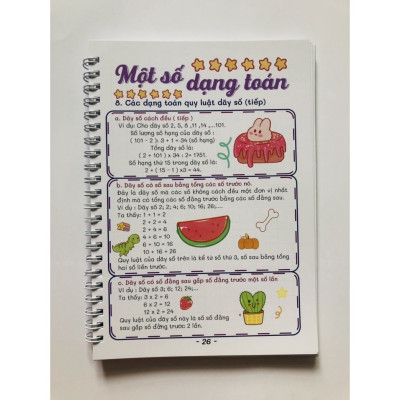 Một số
dạng toán
8. Các dạng toán quy luật dãy số (tiếp)
a. Dãy số cách đều ( tiếp )
Ví dụ: Cho dãy số 2, 5, 8 ,11 ,14 ,...101.
Số lượng số hạng của dãy số :
( 101 - 2 ): 3 + 1 = 34 (số hạng)
Tổng dãy số là:
( 2 + 101 ) x 34 : 2= 1751.
Số hạng thứ 15 trong dãy số là:
2 + ( 15 - 1 ) x3 = 44.
b. Dãy số có số sau bằng tổng các số trước nó.
Đây là dãy số mà các số không cách đều một đơn vị nhất
định mà có tổng các số đằng trước bằng các số đằng sau.
Ví dụ : Dãy số 2; 2; 4; 6; 10; 16; 26;...
Ta thấy: 1 + 1 = 2
2 + 2 = 4
2 + 4 = 6
4 + 6 = 10
6 + 10 = 16
10 + 16 = 26
Quy luật của dãy số trên là kể từ số thứ 3, số sau bằng tổng
hai số liền trước.
c. Dãy số có số đằng sau gấp số đằng trước một số lần
Ví dụ : Dãy số 3; 6; 12; 24;...
Ta thấy: 3 x 2 = 6
6 x 2 = 12
12 x 2 = 24
Quy luật của dãy số này là số số đằng
sau gấp số đằng trước 2 lần.
- 26 -